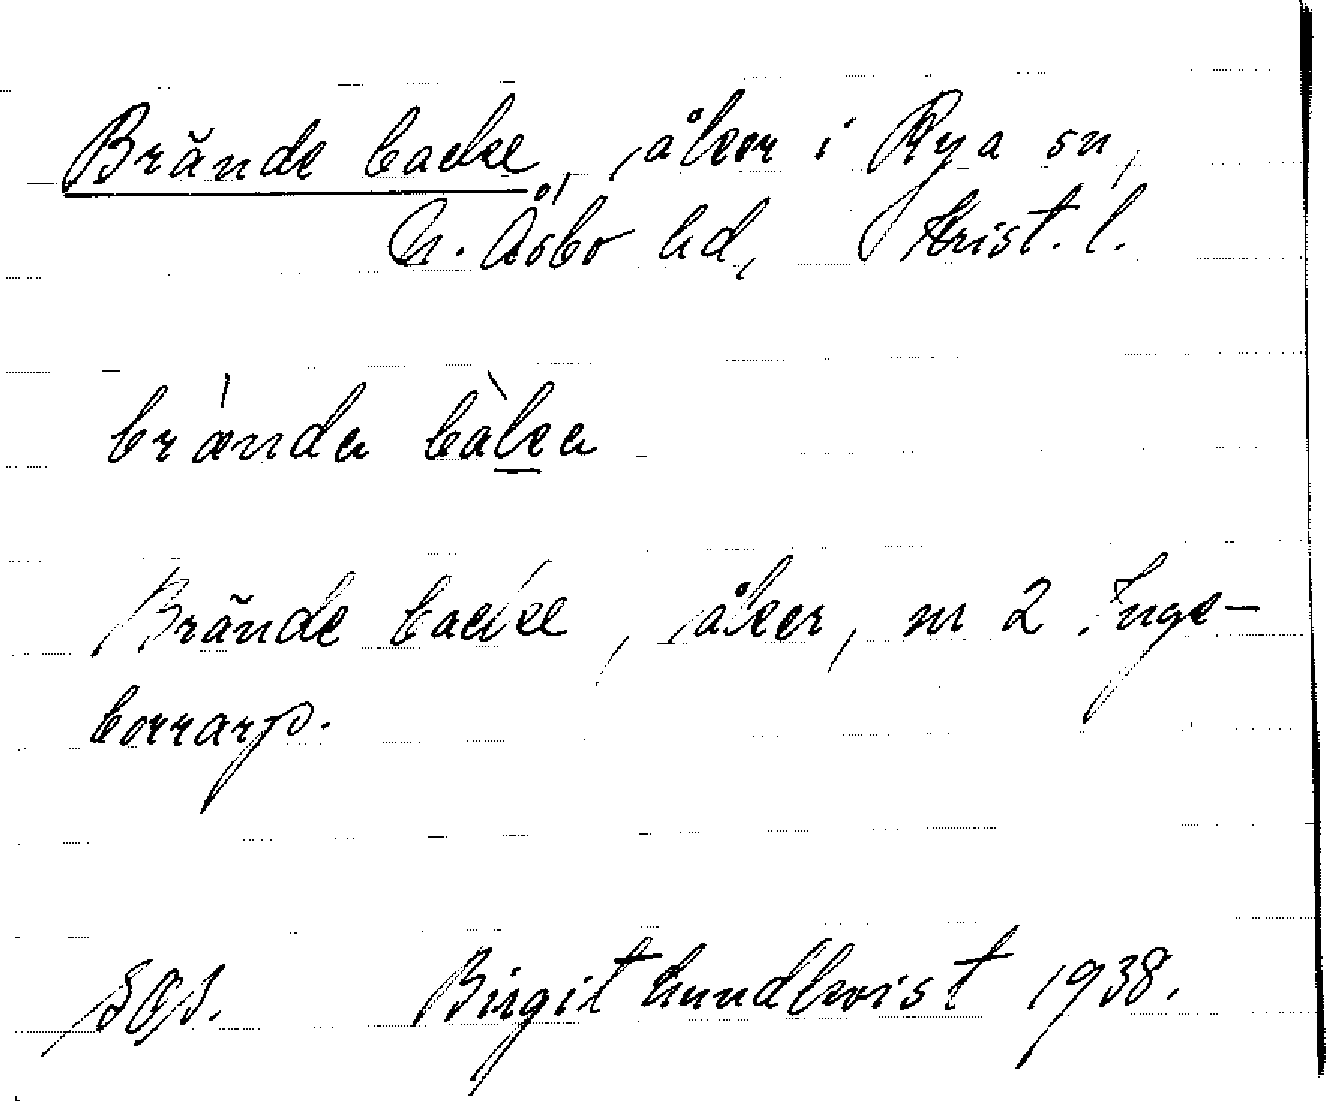 Brände backe, åker i Rya sn,
N. Åsbo hd, Krist. l.
brända bàka
Brände backe, åker, nr 2 Inge-
borrarp.
Birgit Lundkvist 1938.